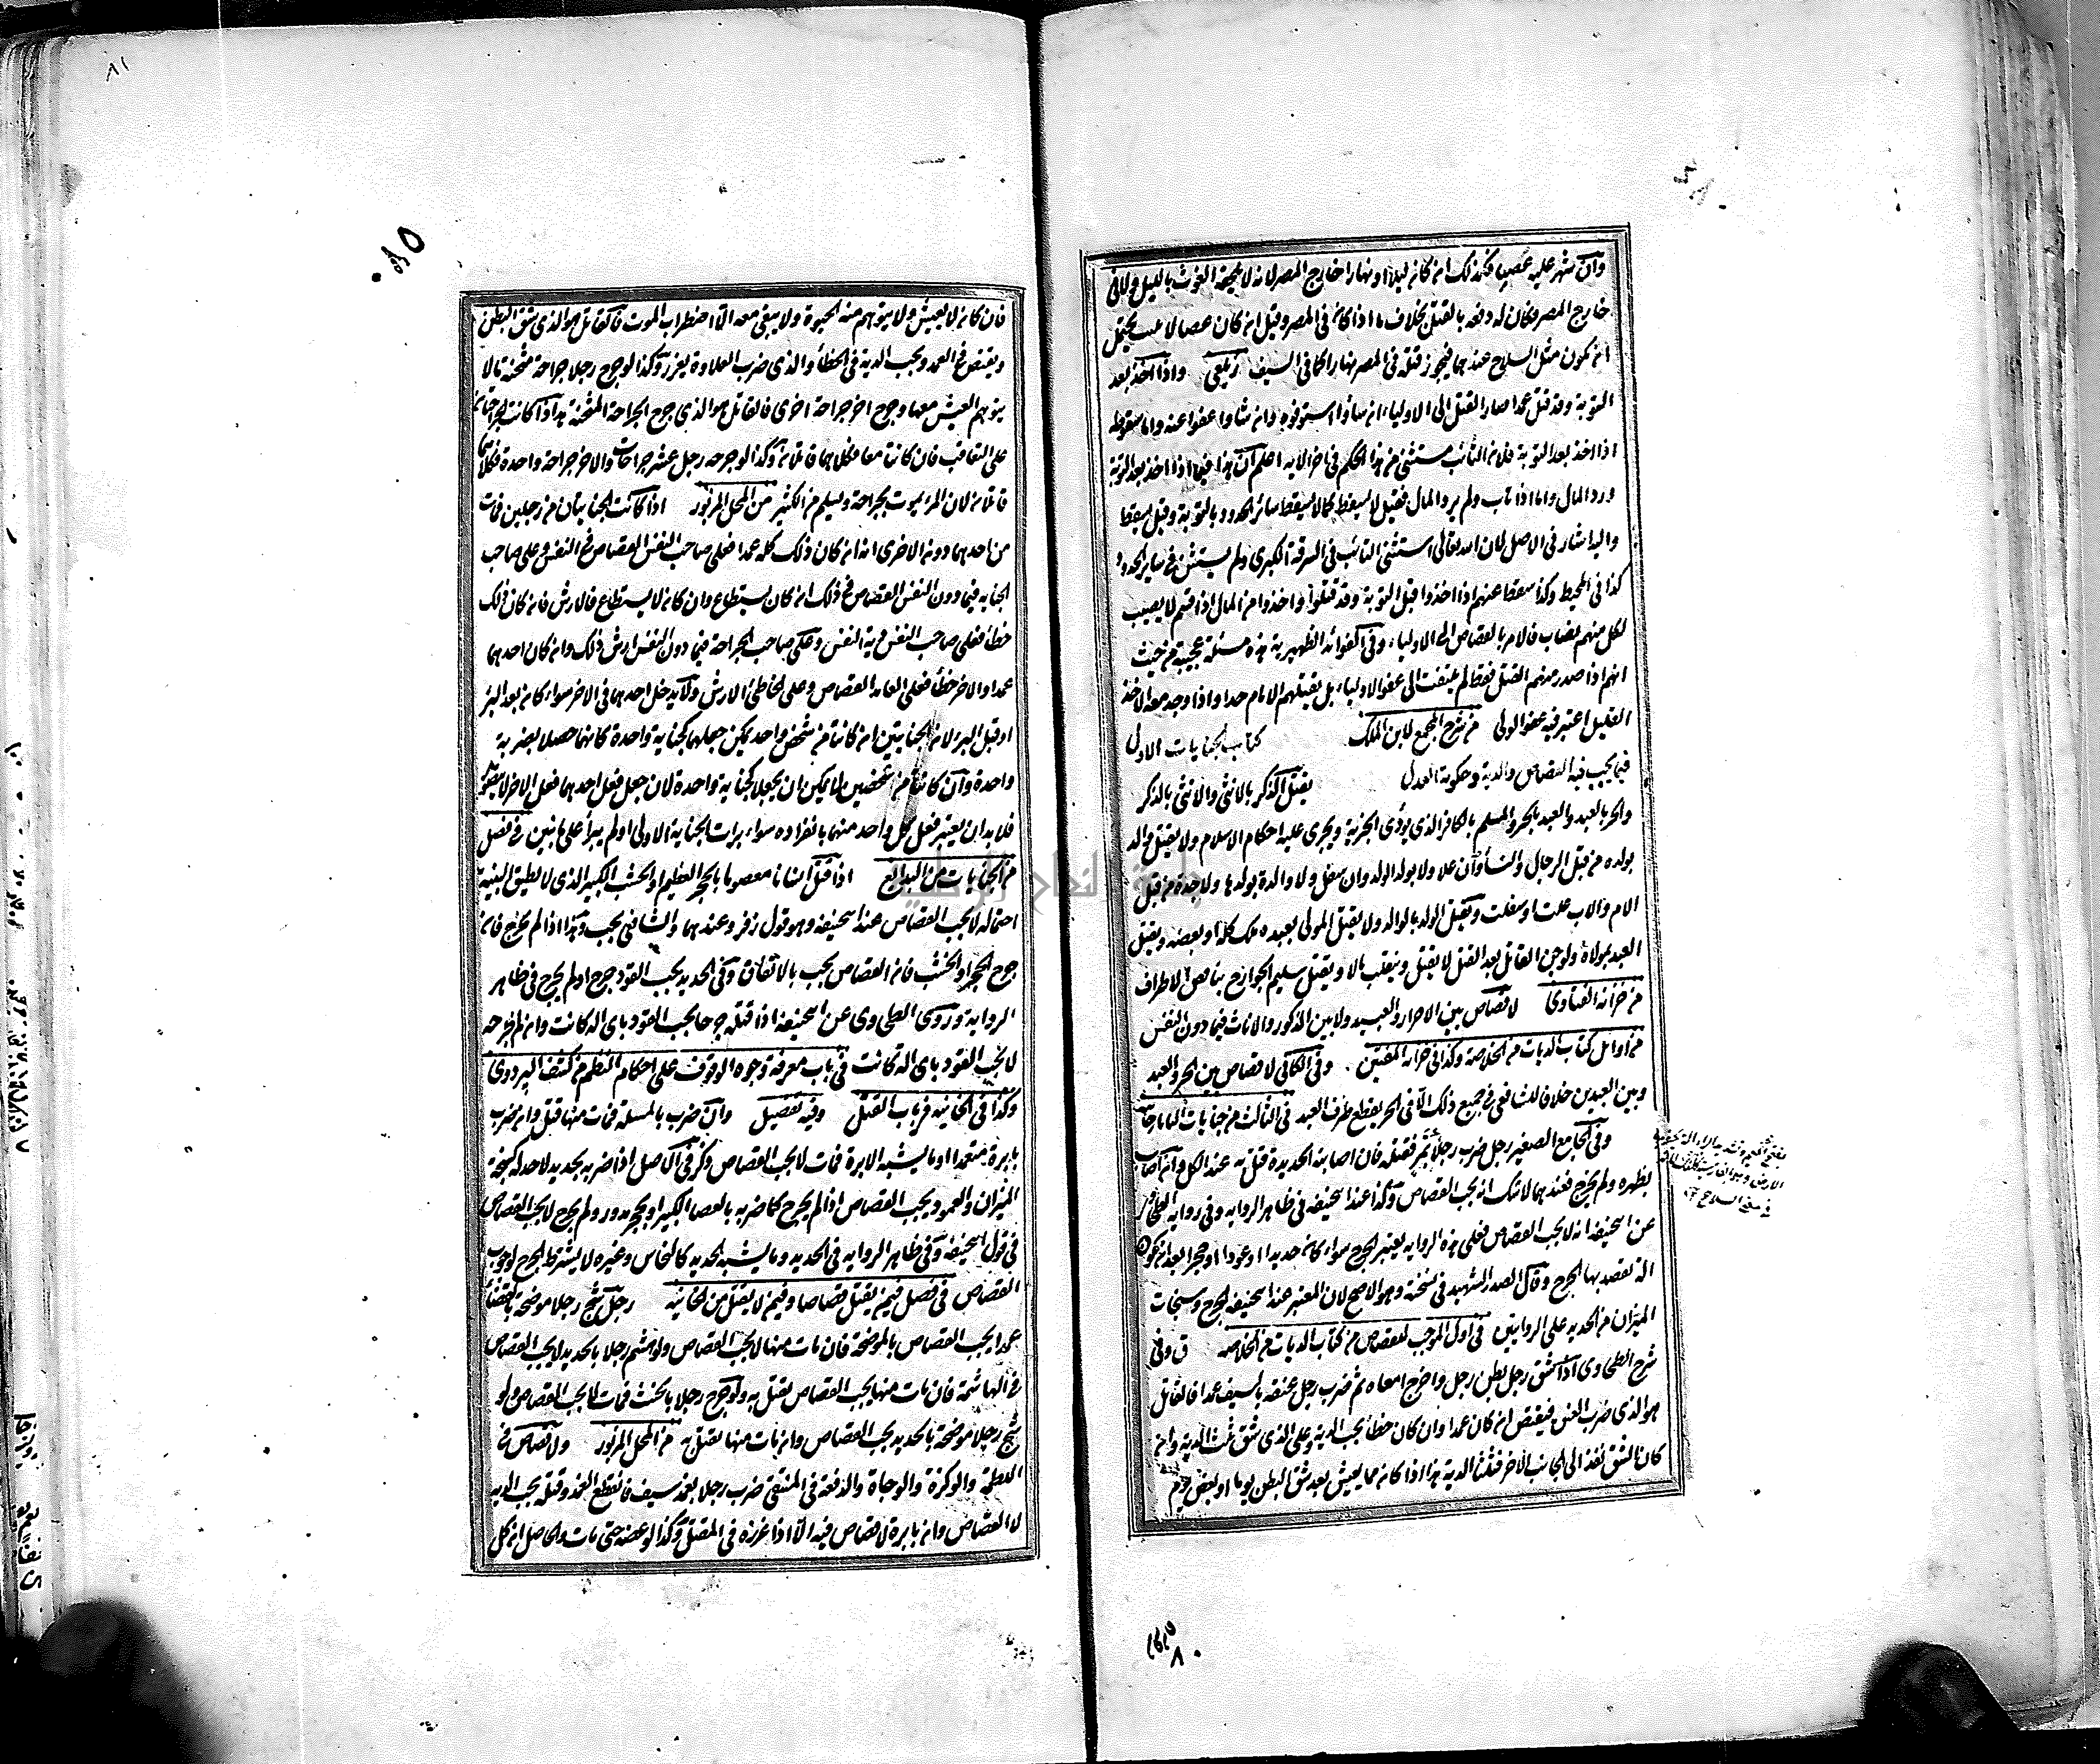 وان شهر عليه عصيا فكذلك ان كانه ليلا او نهارا خارج المصر لانه لا يلحقه الغوث بالليل ولا في
خارج المصر فكان له دفعه بالقتل بخلاف ما اذا كانه في المصر وقيل ان كان عصا لا تلبث يحتمل
ان تكون مثل السلاح عندهما فيجوز قتله في المصر نهارا كما في السيف زيلعي واذا اخذ بعد
التوبة وقد قتل عمدا صار القتل الى الاولياء ان شاؤا استوفوه وان شاوا عفوا عنه واما سقوطه
اذا اخذ بعد التوبة فلان التائب مستثنى من هذا الحكم في اخر الاية اعلم ان هذا فيما اذا اخذ بعد التوبة
ورد المال واما اذا تاب ولم يرد المال فقيل لا يسقط كما لا يسقط سائر الحدود بالتوبة وقيل يسقط
واليه اشار في الاصل لان الله تعالى استثنى التائب في السرقة الكبرى ولم يستثن في سائر الحدود
كذا في المحيط وكذا سقط عنهم اذا اخذوا قبل التوبة وقد قتلوا واخذوا من المال اذا قسم لا يصيب
لكل منهم نصاب فالامر بالقصاص الى الاولياء وفي الفوائد الظهيرية هذه مسئلة عجيبة من حيث
انهم اذا صدر منهم القتل فقط لم يلتفت الى عفو الاولياء بل يقتلهم الامام حدا واذا وجد معه الاخذ
القليل اعتبر فيه عفو الولي من شرح المجمع لابن الملك كتاب الجنايات الاول
فيما يجب فيه القصاص والدية وحكومة العدل يقتل الذكر بالانثى والانثى بالذكر
والحر بالعبد والعبد بالحر والمسلم بالكافر الذي يؤدي الجزية ويجري عليه احكام الاسلام ولا يقتل والد
بولده من قبل الرجال والنساء وان علا ولا بولد الولد وان سفل ولا والدة بولدها ولا جدة من قبل
الام والاب علت او سفلت ويقتل الولد بالوالد ولا يقتل المولى بعبده ملك كله او بعضه ويقتل
العبد بمولاه ولو جن القاتل بعد القتل لا يقتل وينقلب مالا ويقتل سليم الجوارح بناقص الاطراف
من خزانة الفتاوى لا قصاص بين الاحرار والعبيد ولا بين الذكور والاناث فيما دون النفس
من اوائل كتاب الديات من الخلاصة وكذا في خزانة المفتين وفي الكافي لا قصاص بين الحر والعبد
وبين العبدين خلافا للشافعي في جميع ذلك الا في الحر يقطع طرف العبد في الثالث من جنايات التاتارخانية
وفي الجامع الصغير رجل ضرب رجلا بمر فقتله فان اصابته الحديدة قتل به عند الكل وان اصاب
بظهره ولم يجرح فعندهما لا شك انه يجب القصاص وكذا عند ابي حنيفة في ظاهر الرواية وفي رواية الطحاوي
عن ابي حنيفة انه لا يجب القصاص فعلى هذه الرواية يعتبر الجرح سواء كانه حديدا او عودا او حجرا بعد ان يكون
الة يقصد بها الجرح وقال الصدر الشهيد في نسخته وهو الاصح لان المعتبر عند ابي حنيفة الجرح وسنجات
الميزان من الحديد على الروايتين في اول الموجب للقصاص من كتاب الديات من الخلاصة ق وفي
شرح الطحاوي اذا شق رجل بطن رجل واخرج امعاه ثم ضرب رجل عنقه بالسيف عمدا فالقاتل
هو الذي ضرب العنق فيقتص ان كان عمدا وان كان خطأ يجب الدية وعلى الذي شق ثلث الدية وان
كان الشق نفذ الى الجانب الاخر فثلثا الدية هذا اذا كانه مما يعيش بعد شق البطن يوما او بعض يوم
فان كانه لا يعيش ولا يتوهم منه الحيوة ولا يبقى معه الا اضطراب الموت فالقاتل هو الذي شق البطن
ويقتص في العمد ويجب الدية في الخطأ والذي ضرب العلاوة يعزر وكذا لو جرح رجلا جراحة مثخنة مما لا
يتوهم العيش معها وجرح اخر جراحة اخرى فالقاتل هو الذي جرح الجراحة المثخنة هذا اذا كانت الجراحتان
على التعاقب فان كانتا معا فكلاهما قاتلان وكذا لو جرحه رجل عشر جراحات والاخر جراحة واحدة فكلاهما
قاتلان لان المرء يموت بجراحة ويسلم من الكثير من المحل المزبور اذا كانت الجنايتان من رجلين فمات
من احدهما دون الاخرى انه ان كان ذلك كله عمدا فعلى صاحب النفس القصاص في النفس وعلى صاحب
الجناية فيما دون النفس القصاص في ذلك ان كان يستطاع وان كانه لا يستطاع فالارش فان كان ذلك
خطأ فعلى صاحب النفس دية النفس وعلى صاحب الجراحة فيما دون النفس ارش ذلك وان كان احدهما
عمدا والاخر خطأ فعلى العامد القصاص وعلى الخاطئ الارش ولا يدخل احدهما في الاخر سواء كانه بعد البرء
او قبل البرء لان الجنايتين ان كانتا من شخص واحد يمكن جعلهما كجناية واحدة كانهما حصلا بضربة
واحدة وان كانتا من شخصين لا يمكن ان يجعلا كجناية واحدة لان جعل فعل احدهما فعل الاخر لا يتصور
فلا بد ان يعتبر فعل كل واحد منهما بانفراده سواء برات الجناية الاولى او لم يبرأ على ما نبين في فصل
من الجنايات من البدائع اذا قتل انسانا معصوما بالحجر العظيم او الخشب الكبير الذي لا تطيق البنية
احتماله لا يجب القصاص عند ابي حنيفة وهو قول زفر وعندهما والشافعي يجب وهذا اذا لم يجرح فان
جرح الحجر او الخشب فان القصاص يجب بالاتفاق وفي الحديد يجب القود جرح او لم يجرح في ظاهر
الرواية وروى الطحاوي عن ابي حنيفة اذا قتله جرحا يجب القود باي الة كانت وان لم يجرحه
لا يجب القود باي الة كانت في باب معرفة وجوه الوقوف على احكام النظم من كشف البزدوي
وكذا في الخانية في باب القتل وفيه تفصيل وان ضرب بالمسلة فمات منها قتل وان ضرب
بابرة متعمدا او ما يشبه الابرة فمات لا يجب القصاص وذكر في الاصل اذا ضربه بحديد لا حد له كسنجة
الميزان والعمود يجب القصاص اذا لم يجرح كما ضربه بالعصا الكبير او بحجر مدور ولم يجرح لا يجب القصاص
في قول ابي حنيفة وفي ظاهر الرواية في الحديد وما يشبه الحديد كالنحاس وغيره لا يشترط الجرح لوجوب
القصاص في فصل فيمن يقتل قصاصا وفيمن لا يقتل من الخانية رجل شج رجلا موضحة بالعصا
عمدا يجب القصاص بالموضحة فان مات منها لا يجب القصاص ولو هشم رجلا بالحديد لا يجب القصاص
في الهاشمة فان مات منها يجب القصاص يقتل به ولو جرح رجلا بالخشب فمات لا يجب القصاص ولو
شج رجلا موضحة بالحديد يجب القصاص وان مات منها يقتل به من المحل المزبور ولا قصاص في
اللطمة والوكزة والوجاة والدفعة في المنتقى ضرب رجلا بغمد سيف فانقطع الغمد وقتله يجب الدية
لا القصاص وان بابرة لا قصاص فيه الا اذا غرزه في المقتل وكذا لو عضه حتى مات والحاصل ان كل
٨٠
٨١